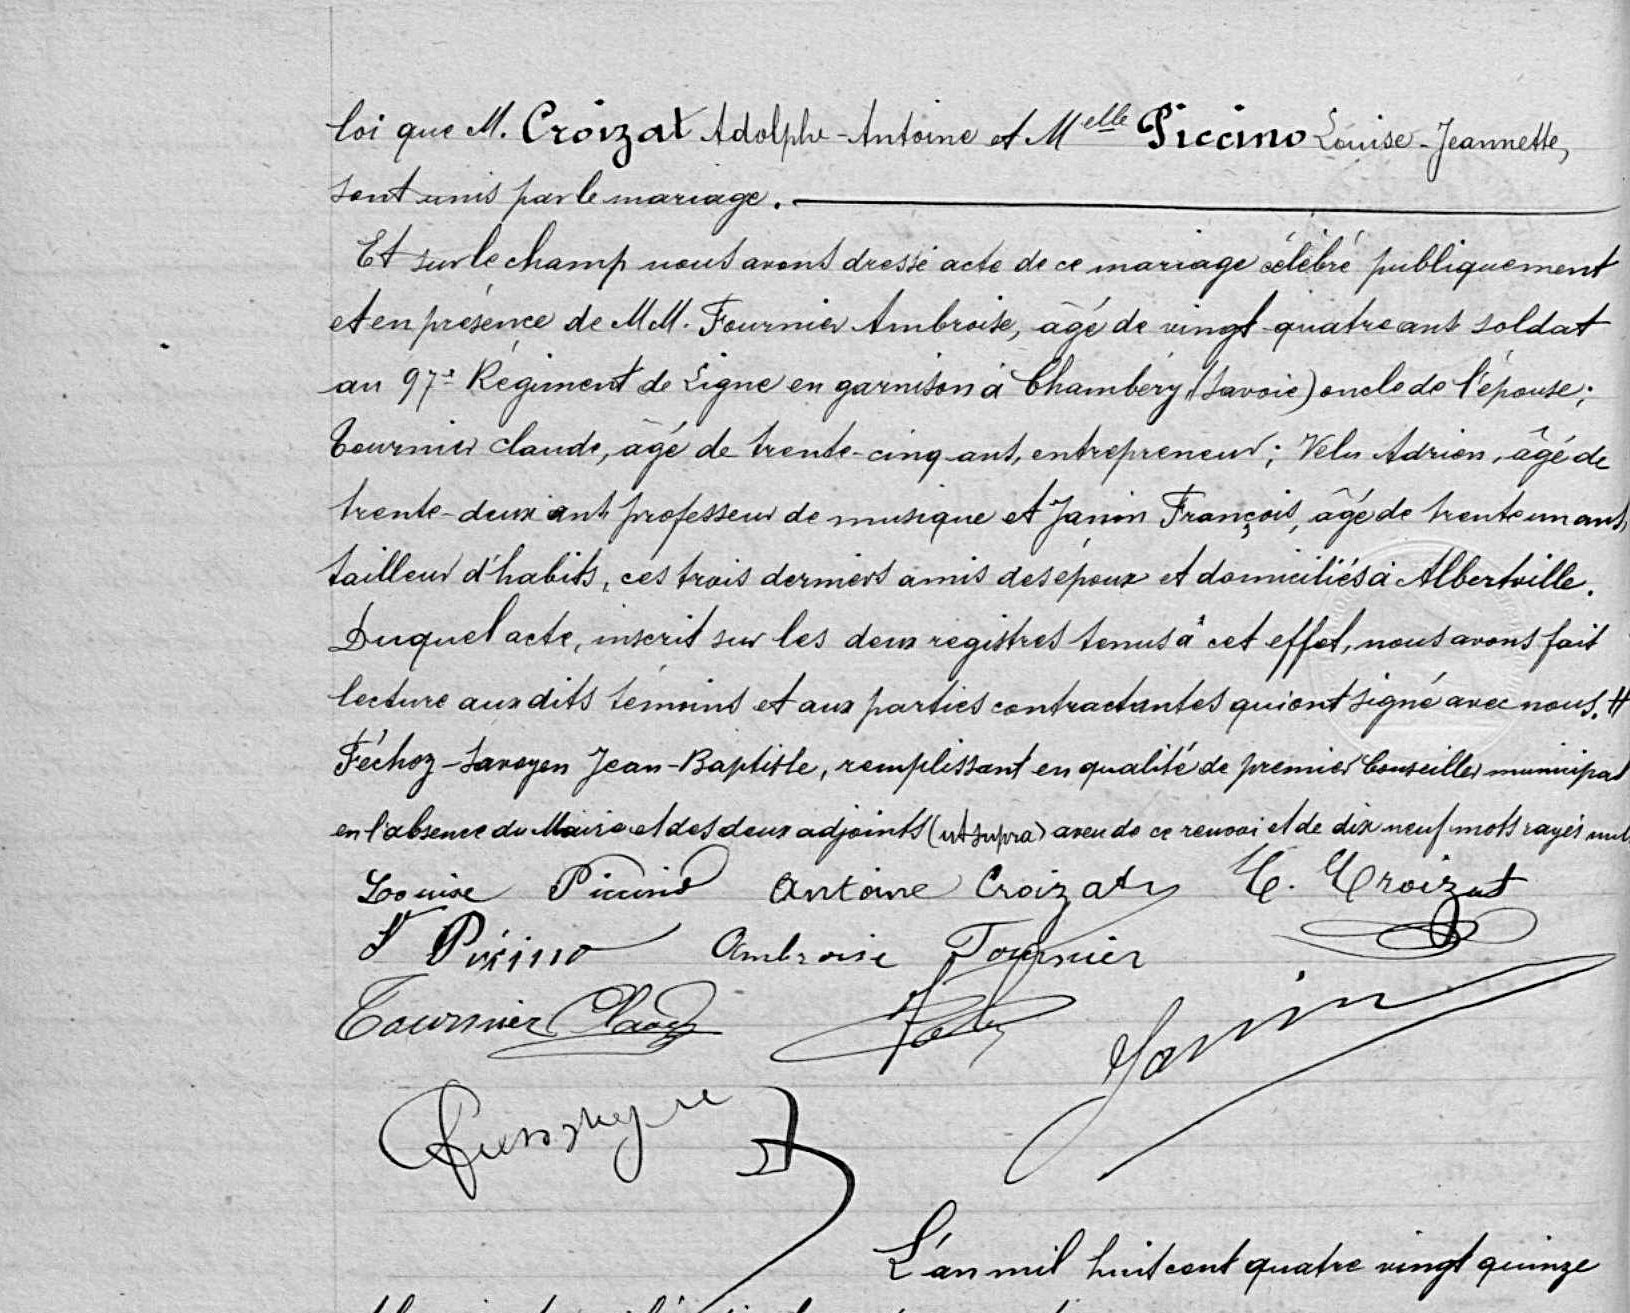 loi que M. Croizat Adolphe-Antoine et Melle Piccino Louise-Jeannette,
sont unis par le mariage.
Et sur le champ nous avons dressé acte de ce mariage célébré publiquement
et en présence de MM. Fournier Ambroise, âgé de vingt-quatre ans soldat
au 97e Régiment de Ligne en garnison à Chambéry (Savoie) oncle de l'épouse;
Tournier Claude, âgé de trente-cinq ans, entrepreneur; Velu Adrien, âgé de
trente-deux ans professeur de musique et Janin François, âgé de trente un ans,
tailleur d'habits, ces trois derniers amis des époux et domiciliés à Albertville.
Duquel acte, inscrit sur les deux registres tenus à cet effet, nous avons fait
lecture aux dits témoins et aux parties contractantes qui ont signé avec nous. #
Féchoz-Savoyen Jean-Baptiste, remplissant en qualité de premier Conseiller municipal
en l'absence du Maire et des deux adjoints (ut supra) aveu de ce renvoi et de dix neuf mots rayés nuls
Louise Piccino Antoine Croizat C. Croizat
Ambroise Fournier
Tournier Claude Velu Janin
L'an mil huit cent quatre vingt quinze